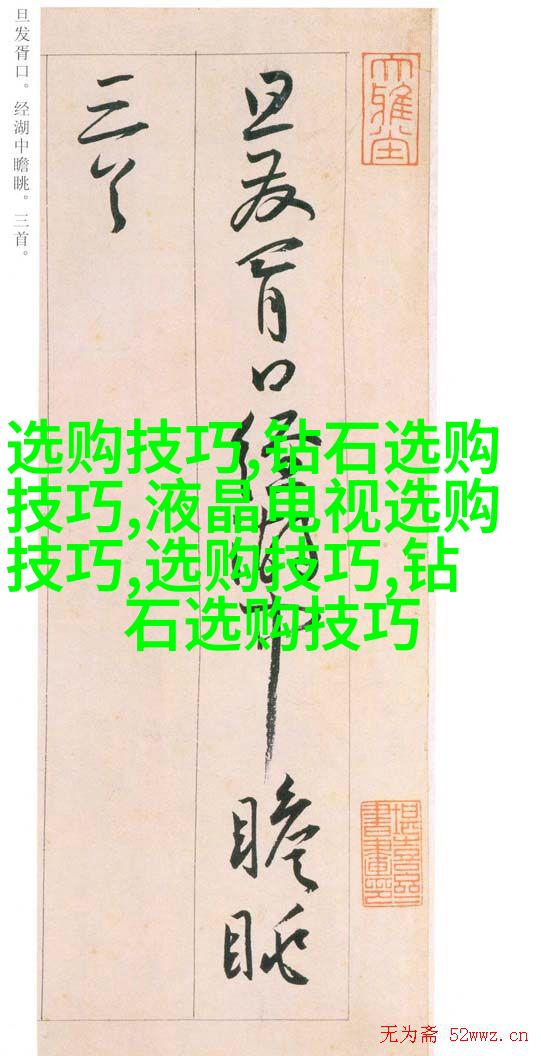 旦发胥口。经湖中瞻眺。三首。
旦发胥口经湖中瞻眺
三首
大雅堂
选购技巧,钻石选购
技巧,液晶电视选购
技巧,选购技巧,钻
石选购技巧
无为斋 52wwz.cn